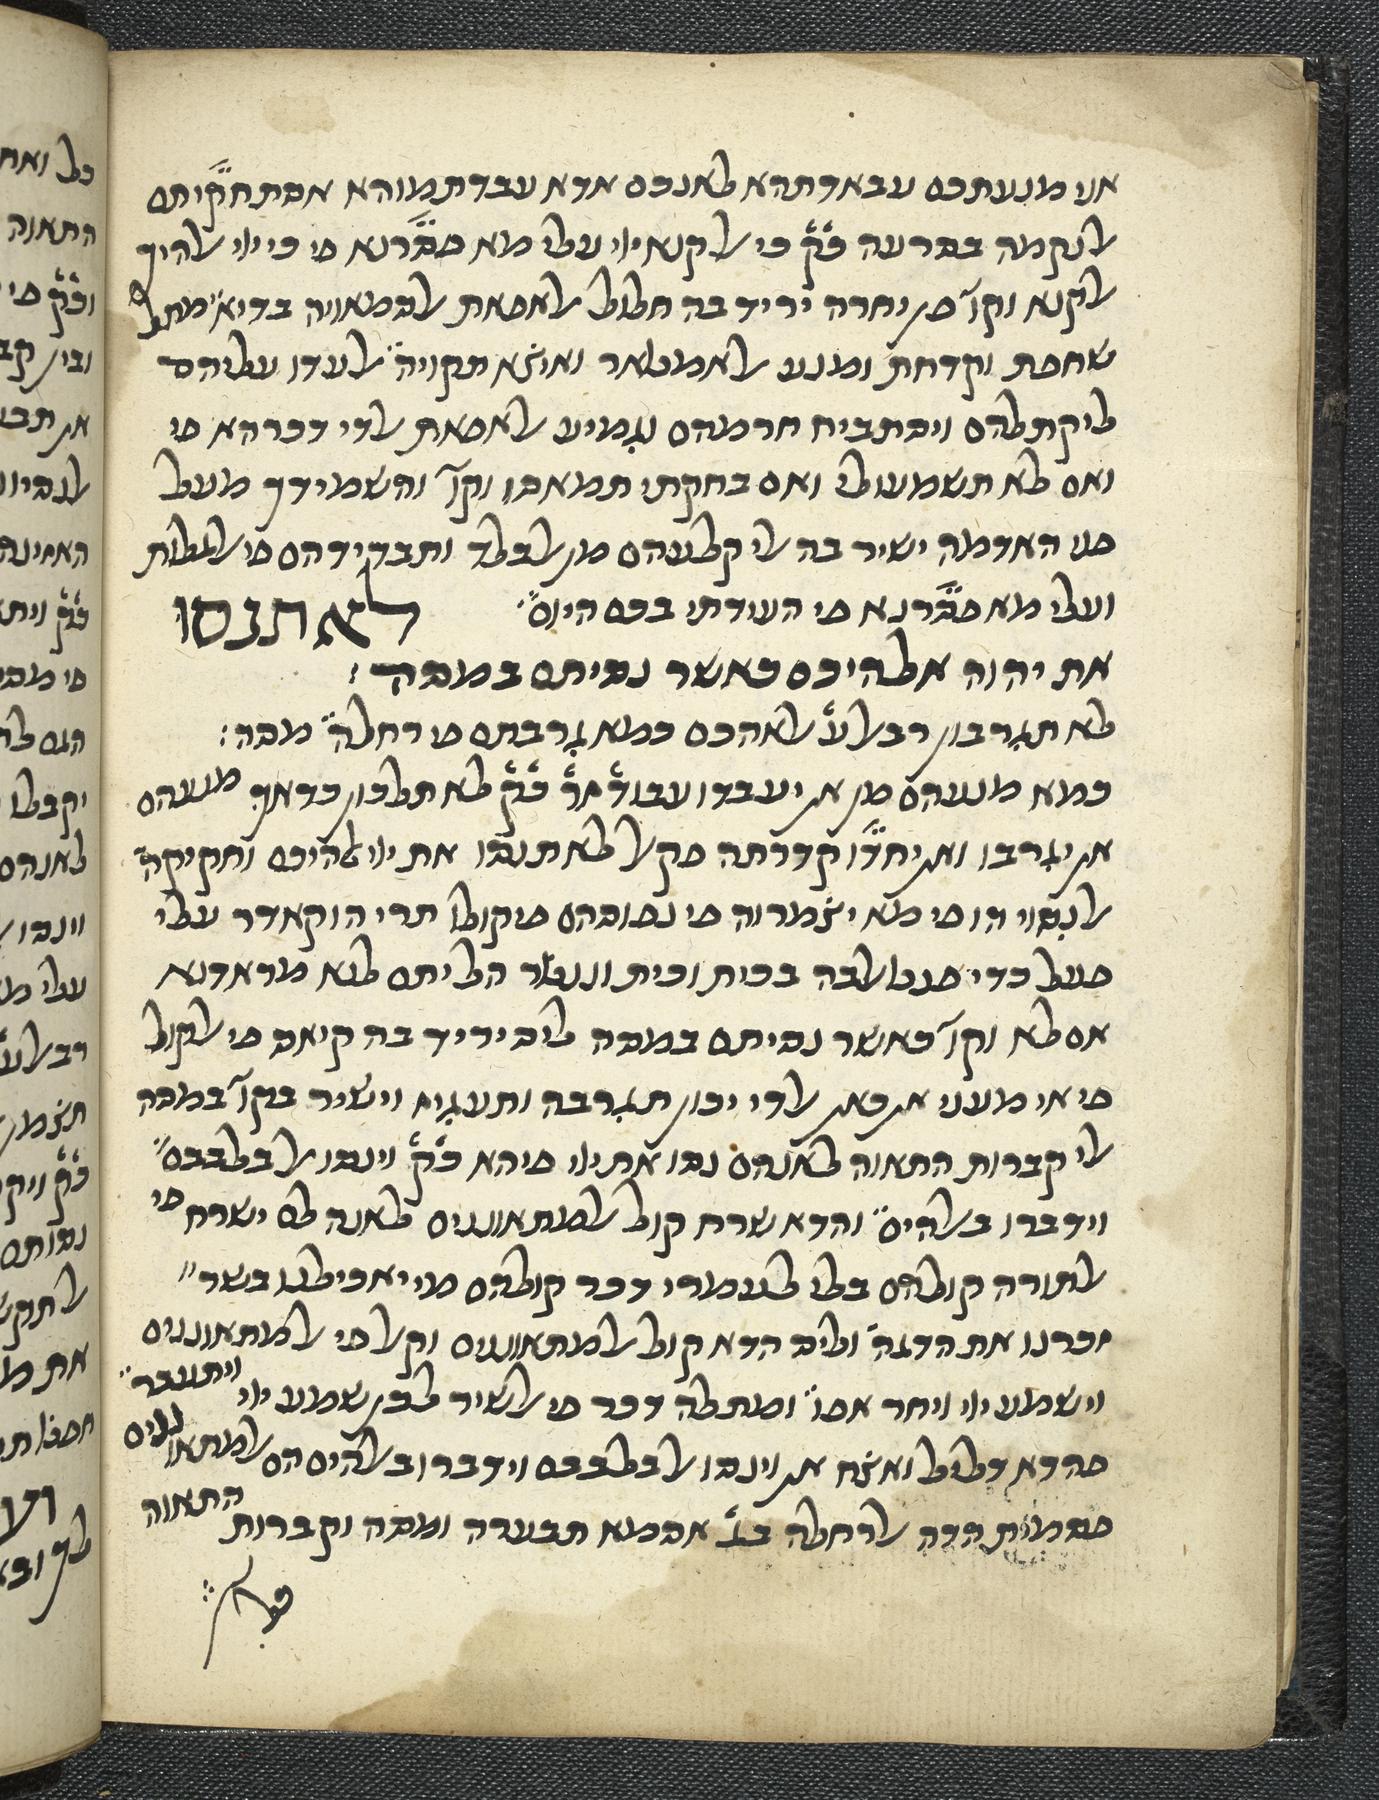 אני מנעתכם עבאדתהא לאנכם אדא עבדתמוהא אסתחקיתם
אלנקמה בסרעה כ̇ק̇ כי אל קנא ייי עלי מא פסרנא פי כי ייי אלהיך
אל קנא וקו' פן יחרה יריד בה חלול אלאפאת אלסמאויה בדיא מתל
שחפת וקדחת ומנע אלאמטאר ואיצא תקויה̈ אלעדו עליהם
ליקתלהם ויסתביח חרמהם וגמיע אלאפאת אלדי דכרהא פי
ואם לא תשמעו לי ואם בחקתי תמאסו וקו' והשמידך מעל
פני האדמה ישיר בה אלי קלעהם מן אלבלד ותבדידהם פי אלגלות
ועלי מא פסרנא פי העידתי בכם היום: לא תנסו
את יהוה אלהיכם כאשר נסיתם במסה:
לא תגרבון רב אלע' אלאהכם כמא גרבתם פי רחלה̈ מסה:
כמא מנעהם מן אן יעבדו עבוד̇ אח̇ר̇ כ̇ק̇ לא תלכון כדאך מנעהם
אן יגרבו ואן יחדו קדרתה פקאל לא תנסו את ייי אלהיכם וחקיקה̈
אלנסוי הו פי מא יצמרוה פי נפוסהם פיקולו תרי הו קאדר עלי
פעל כדי פנטאלבה בכית וכית וננטר הל יתם לנא מראדנא
אם לא וקו' כאשר נסיתם במסה ליס יריד בה קיאס פי אלקול
פי אי מעני אן כאן אלדי יכון תגרבה ותעגיז וישיר בקו' במסה
אלי קברות התאוה לאנהם נסו את ייי פיהא כ̇ק̇ וינסו אל בלבבם
וידברו באלהים̈ והדא שרח קול אלמתאוננים לאנה לם ישרח פי
אלתורה קולהם בלי לעמרי דכר קולהם מי יאכילנו בשר
זכרנו את הדגה̈ וליס הדא קול אלמתאוננים וקאל פי אלמתאוננים
וישמע ייי ויחר אפו̈ ומתלה דכר פי אלשיר לכן שמע ייי ויתעבר̈
פהדא דליל ואצח אן וינסו אל בלבבם וידברו באלהים הם אלמתאוננים
פסמית הדה אלרחלה בג̇ אסמא תבערה ומסה וקברות התאוה